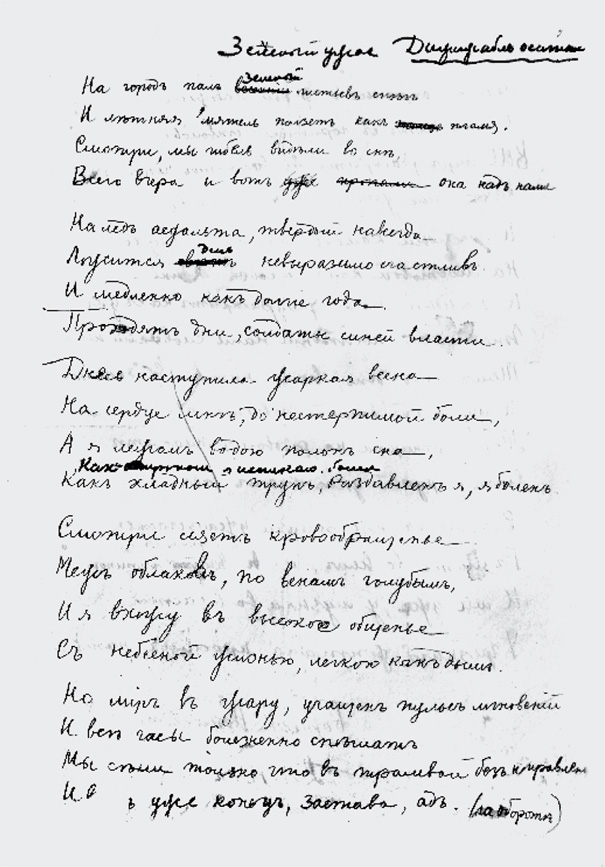 Зеленый ужас Дирижабль осатан
На городъ палъ зеленый листьевъ снѣгъ
И лѣтняя мятель ползетъ какъ пламя.
Смотри, мы гибель видѣли во снѣ,
Всего вчера и вотъ уже она надъ нами
На ледъ асфальта, твердый навсегда
Ложится день невыразимо счастливъ.
И медленно какъ долгие года
Проходятъ дни, солдаты синей власти.
Днесь наступила жаркая весна
На сердце мнѣ, до нестерпимой боли,
А я лежалъ водою полонъ сна,
Какъ я истекаю болью
Какъ хладный трупъ, раздавленъ я, я боленъ
Смотри сияетъ кровообращенье
Межъ облаковъ, по венамъ голубымъ,
И я вхожу въ высокое общенье
Съ небесной жизнью, легкою какъ дымъ.
Но міръ въ жару, учащенъ пульсъ мгновений
И всѣ часы болезненно спѣшатъ
Мы сѣли только что въ трамвай безъ направлен
И уже конецъ, застава, адъ. (на оборотѣ)